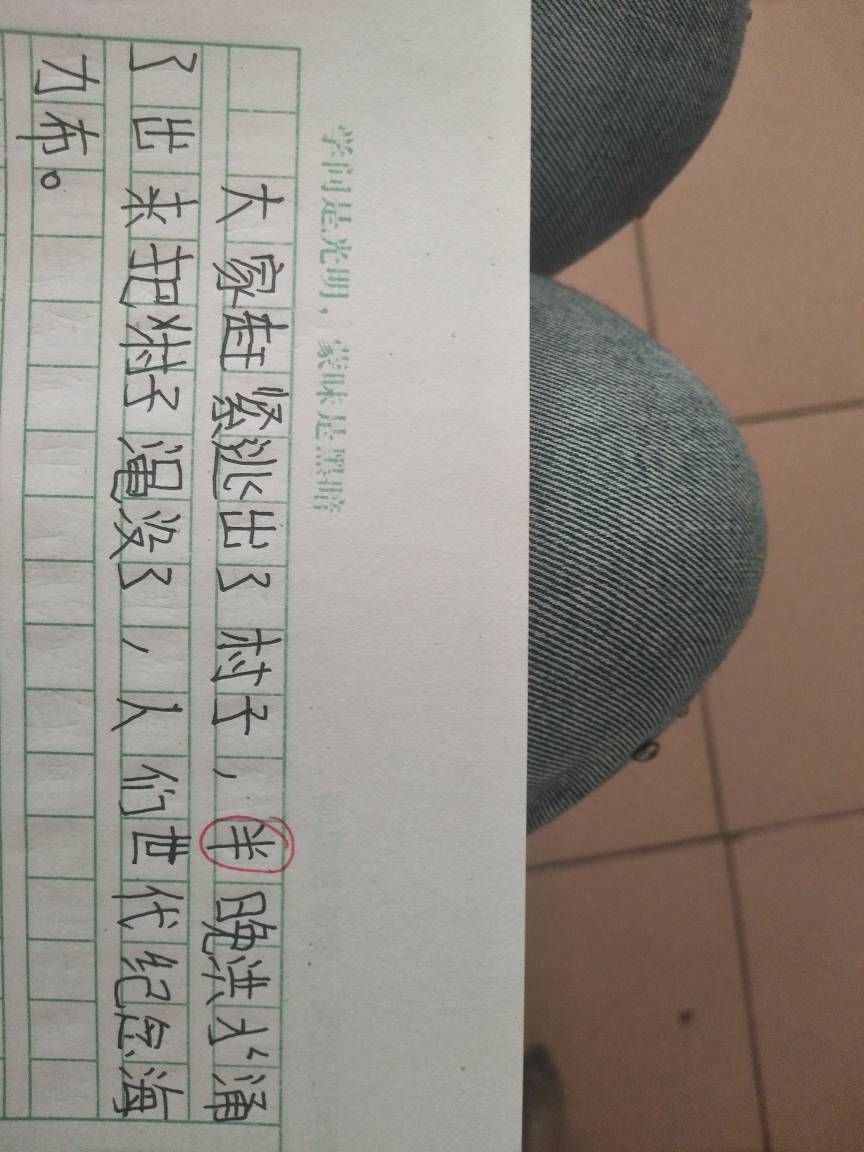 学问是光明，蒙昧是黑暗
大家赶紧逃出了村子，半晚洪水涌
了出来把村子淹没了，人们世代纪念海
力布。